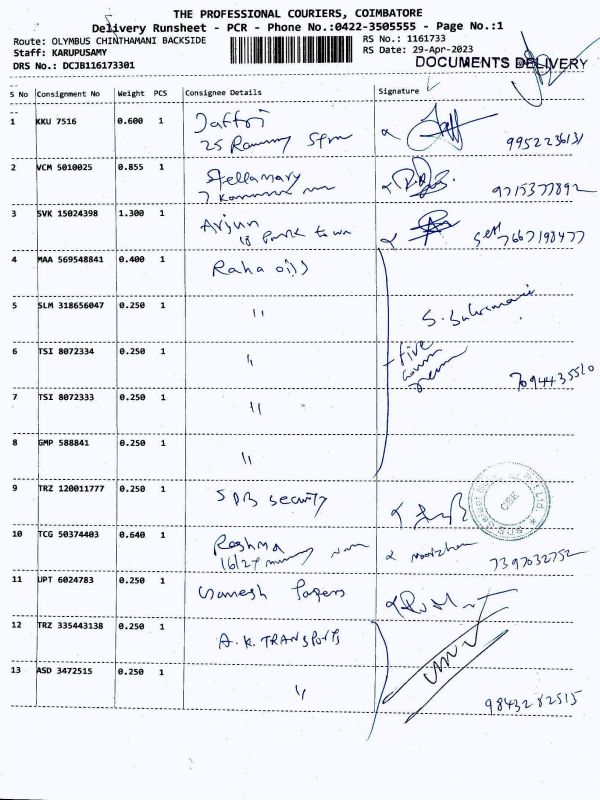 THE PROFESSIONAL COURIERS, COIMBATORE
Delivery Runsheet - PCR - Phone No.:0422-3505555 - Page No.:1
Route: OLYMBUS CHINTHAMANI BACKSIDE
RS No.: 1161733
Staff: KARUPUSAMY
RS Date: 29-Apr-2023
DRS No.: DCJB116173301
DOCUMENTS DELIVERY
S No Consignment No Weight PCS Consignee Details Signature
1 KKU 7516 0.600 1 Jaffri
25 9952236131
2 VCM 5010025 0.855 1 Stellamary
7 9715377892
3 SVK 15024398 1.300 1 Arjun
18 town 7667198477
4 MAA 569548841 0.400 1 Raha oils
5 SLM 318656047 0.250 1 "
6 TSI 8072334 0.250 1 " Five
7094435510
7 TSI 8072333 0.250 1 "
8 GMP 588841 0.250 1 "
9 TRZ 120011777 0.250 1 SDB security
10 TCG 50374403 0.640 1 Reshma
16/27 7397032752
11 UPT 6024783 0.250 1 Ganesh Papers
12 TRZ 335443138 0.250 1 A.K. TRANSPORTS
13 ASD 3472515 0.250 1 "
9843282515